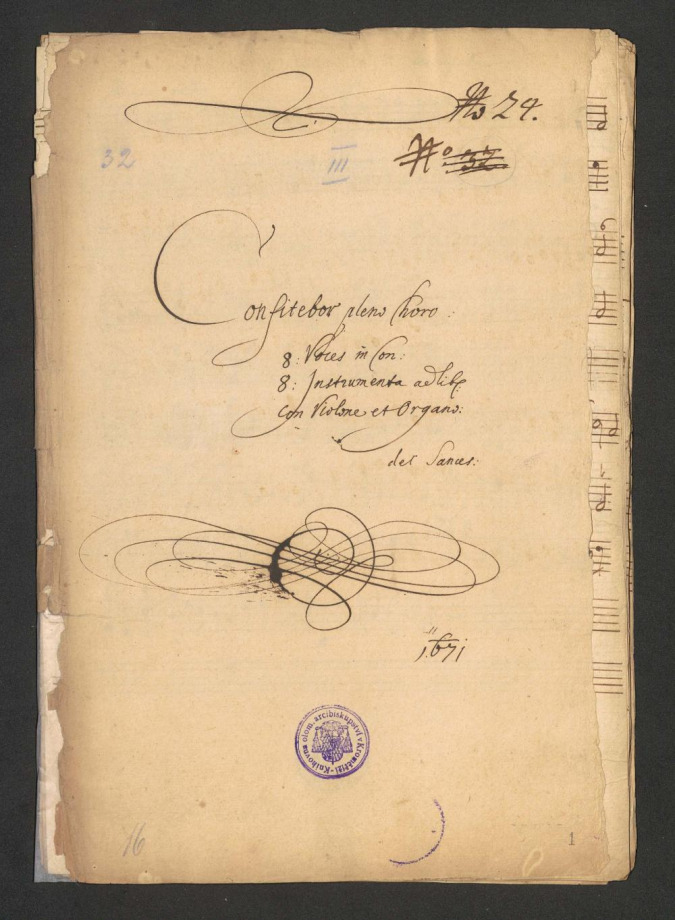 No 24.
No 32
32
III
Confitebor pleno Choro:
8: Voces in Con:
8: Instrumenta ad lib:
Con Violone et Organo:
del Sances:
1671
Knihovna olom. arcibiskupství v Kroměříži
16
1